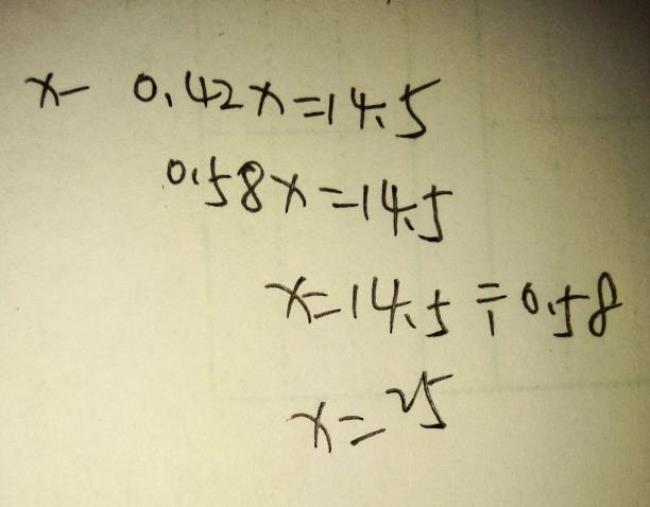 x- 0.42x=14.5
0.58x=14.5
x=14.5÷0.58
x=25